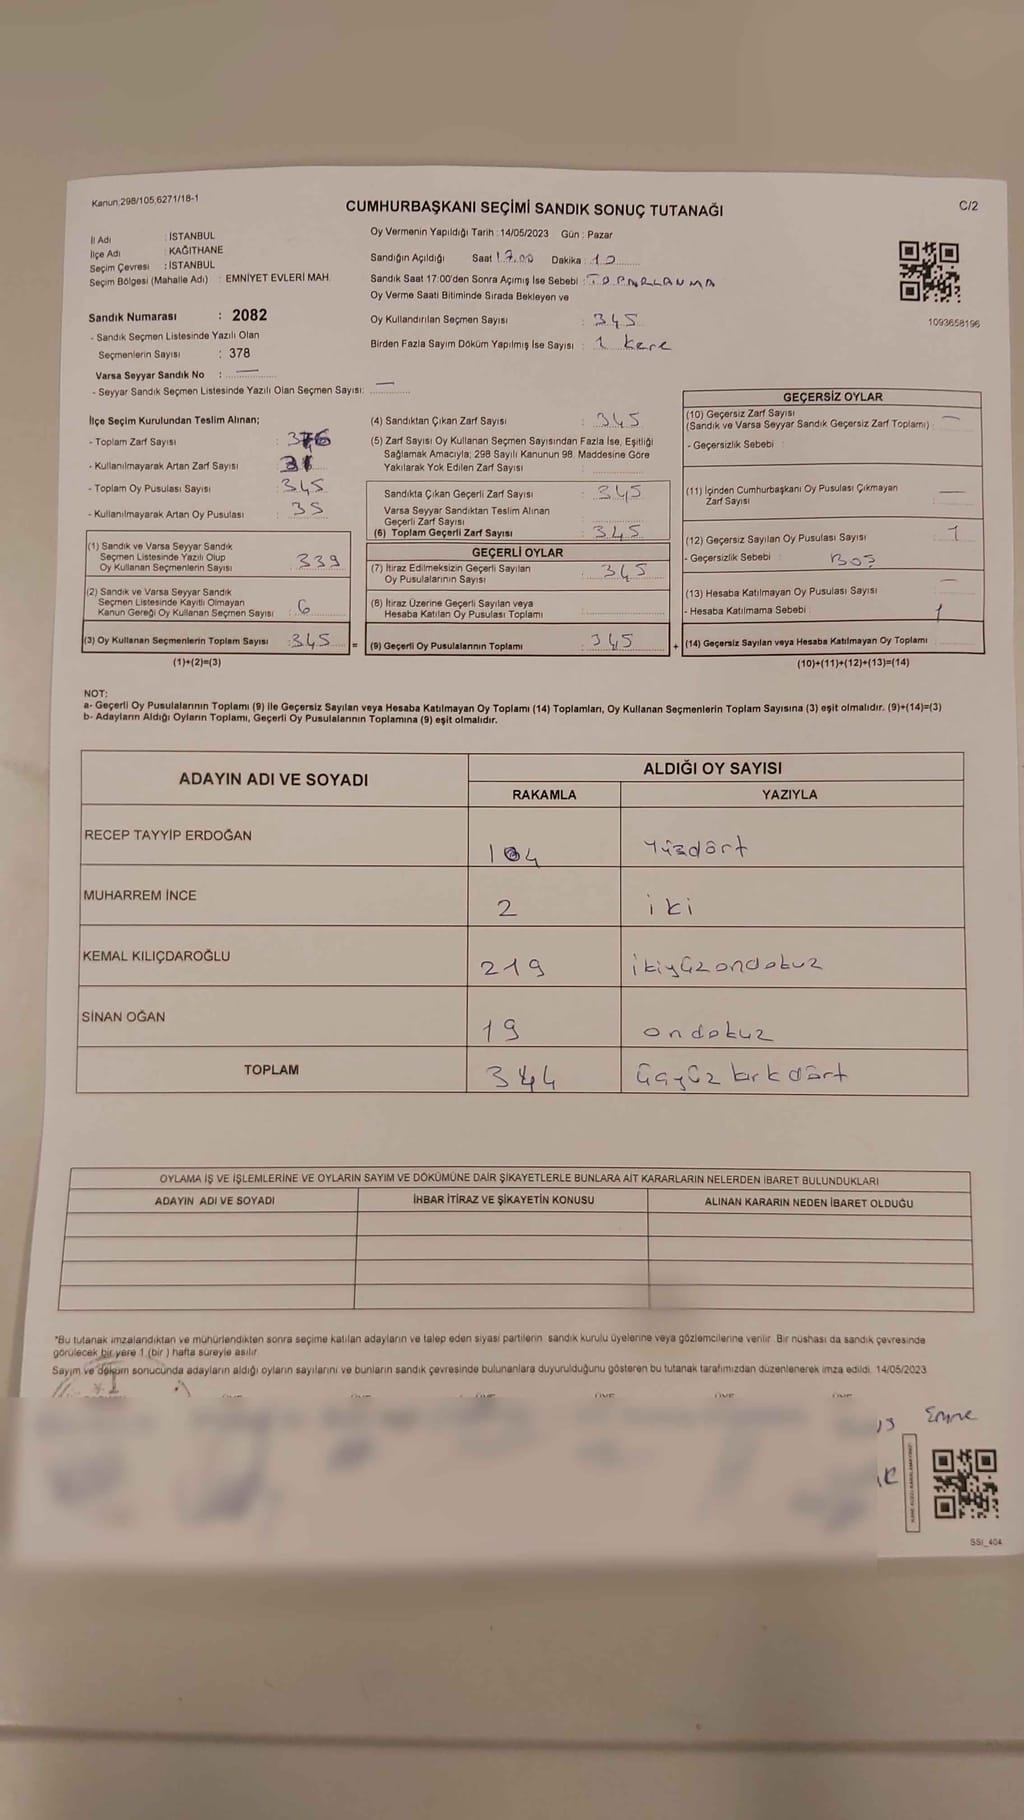 Kanun;298/105,6271/18-1
CUMHURBAŞKANI SEÇİMİ SANDIK SONUÇ TUTANAĞI
C/2
İl Adı : İSTANBUL
İlçe Adı : KAĞITHANE
Seçim Çevresi : İSTANBUL
Seçim Bölgesi (Mahalle Adı) : EMNİYET EVLERİ MAH.
Sandık Numarası : 2082
- Sandık Seçmen Listesinde Yazılı Olan
Seçmenlerin Sayısı : 378
Varsa Seyyar Sandık No : —
- Seyyar Sandık Seçmen Listesinde Yazılı Olan Seçmen Sayısı: —
Oy Vermenin Yapıldığı Tarih : 14/05/2023 Gün : Pazar
Sandığın Açıldığı Saat 17.00 Dakika : 10
Sandık Saat 17:00'den Sonra Açımış İse Sebebi : TOPARLANMA
Oy Verme Saati Bitiminde Sırada Bekleyen ve
Oy Kullandırılan Seçmen Sayısı : 345
Birden Fazla Sayım Döküm Yapılmış İse Sayısı : 1 kere
1093658196
İlçe Seçim Kurulundan Teslim Alınan;
- Toplam Zarf Sayısı :
- Kullanılmayarak Artan Zarf Sayısı :
- Toplam Oy Pusulası Sayısı : 345
- Kullanılmayarak Artan Oy Pusulası : 35
(1) Sandık ve Varsa Seyyar Sandık
Seçmen Listesinde Yazılı Olup
Oy Kullanan Seçmenlerin Sayısı : 339
(2) Sandık ve Varsa Seyyar Sandık
Seçmen Listesinde Kayıtlı Olmayan
Kanun Gereği Oy Kullanan Seçmen Sayısı : 6
(3) Oy Kullanan Seçmenlerin Toplam Sayısı : 345 =
(1)+(2)=(3)
(4) Sandıktan Çıkan Zarf Sayısı : 345
(5) Zarf Sayısı Oy Kullanan Seçmen Sayısından Fazla İse, Eşitliği
Sağlamak Amacıyla; 298 Sayılı Kanunun 98. Maddesine Göre
Yakılarak Yok Edilen Zarf Sayısı :
Sandıkta Çıkan Geçerli Zarf Sayısı : 345
Varsa Seyyar Sandıktan Teslim Alınan
Geçerli Zarf Sayısı
(6) Toplam Geçerli Zarf Sayısı : 345
GEÇERLİ OYLAR
(7) İtiraz Edilmeksizin Geçerli Sayılan
Oy Pusulalarının Sayısı : 345
(8) İtiraz Üzerine Geçerli Sayılan veya
Hesaba Katılan Oy Pusulası Toplamı :
(9) Geçerli Oy Pusulalarının Toplamı : 345 +
GEÇERSİZ OYLAR
(10) Geçersiz Zarf Sayısı
(Sandık ve Varsa Seyyar Sandık Geçersiz Zarf Toplamı) : —
- Geçersizlik Sebebi :
(11) İçinden Cumhurbaşkanı Oy Pusulası Çıkmayan
Zarf Sayısı : —
(12) Geçersiz Sayılan Oy Pusulası Sayısı : 1
- Geçersizlik Sebebi : BOŞ
(13) Hesaba Katılmayan Oy Pusulası Sayısı : —
- Hesaba Katılmama Sebebi : 1
(14) Geçersiz Sayılan veya Hesaba Katılmayan Oy Toplamı :
(10)+(11)+(12)+(13)=(14)
NOT:
a- Geçerli Oy Pusulalarının Toplamı (9) ile Geçersiz Sayılan veya Hesaba Katılmayan Oy Toplamı (14) Toplamları, Oy Kullanan Seçmenlerin Toplam Sayısına (3) eşit olmalıdır. (9)+(14)=(3)
b- Adayların Aldığı Oyların Toplamı, Geçerli Oy Pusulalarının Toplamına (9) eşit olmalıdır.
ADAYIN ADI VE SOYADI
ALDIĞI OY SAYISI
RAKAMLA YAZIYLA
RECEP TAYYİP ERDOĞAN 104 Yüzdört
MUHARREM İNCE 2 iki
KEMAL KILIÇDAROĞLU 219 ikiyüzondokuz
SİNAN OĞAN 19 ondokuz
TOPLAM 344 üçyüz kırk dört
OYLAMA İŞ VE İŞLEMLERİNE VE OYLARIN SAYIM VE DÖKÜMÜNE DAİR ŞİKAYETLERLE BUNLARA AİT KARARLARIN NELERDEN İBARET BULUNDUKLARI
ADAYIN ADI VE SOYADI İHBAR İTİRAZ VE ŞİKAYETİN KONUSU ALINAN KARARIN NEDEN İBARET OLDUĞU
*Bu tutanak imzalandıktan ve mühürlendikten sonra seçime katılan adayların ve talep eden siyasi partilerin sandık kurulu üyelerine veya gözlemcilerine verilir. Bir nüshası da sandık çevresinde
görülecek bir yere 1 (bir ) hafta süreyle asılır.
Sayım ve döküm sonucunda adayların aldığı oyların sayılarını ve bunların sandık çevresinde bulunanlara duyurulduğunu gösteren bu tutanak tarafımızdan düzenlenerek imza edildi. 14/05/2023
Emre
SSI_404